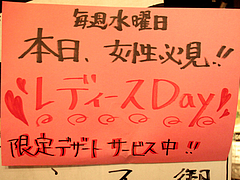 毎週水曜日
本日、女性必見!!
レディースDay
限定デザートサービス中!!